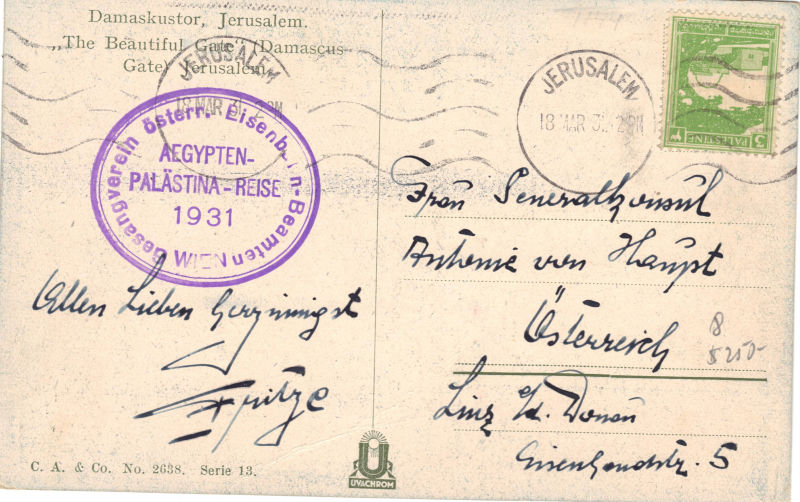 Damaskustor, Jerusalem.
„The Beautiful Gate" (Damascus-
Gate) Jerusalem.
JERUSALEM
18 MAR 31. 2 PM
JERUSALEM
18 MAR 31. 2 PM
PALESTINE
5
Gesangverein österr. Eisenbahn-Beamten
AEGYPTEN-
PALÄSTINA-REISE
1931
WIEN
Allen Lieben herzinnigst
Frau Generalkonsul
Antonie von Haupt
Österreich
Linz a/d. Donau
5
8
5250-
C. A. & Co. No. 2638. Serie 13.
U
UVACHROM